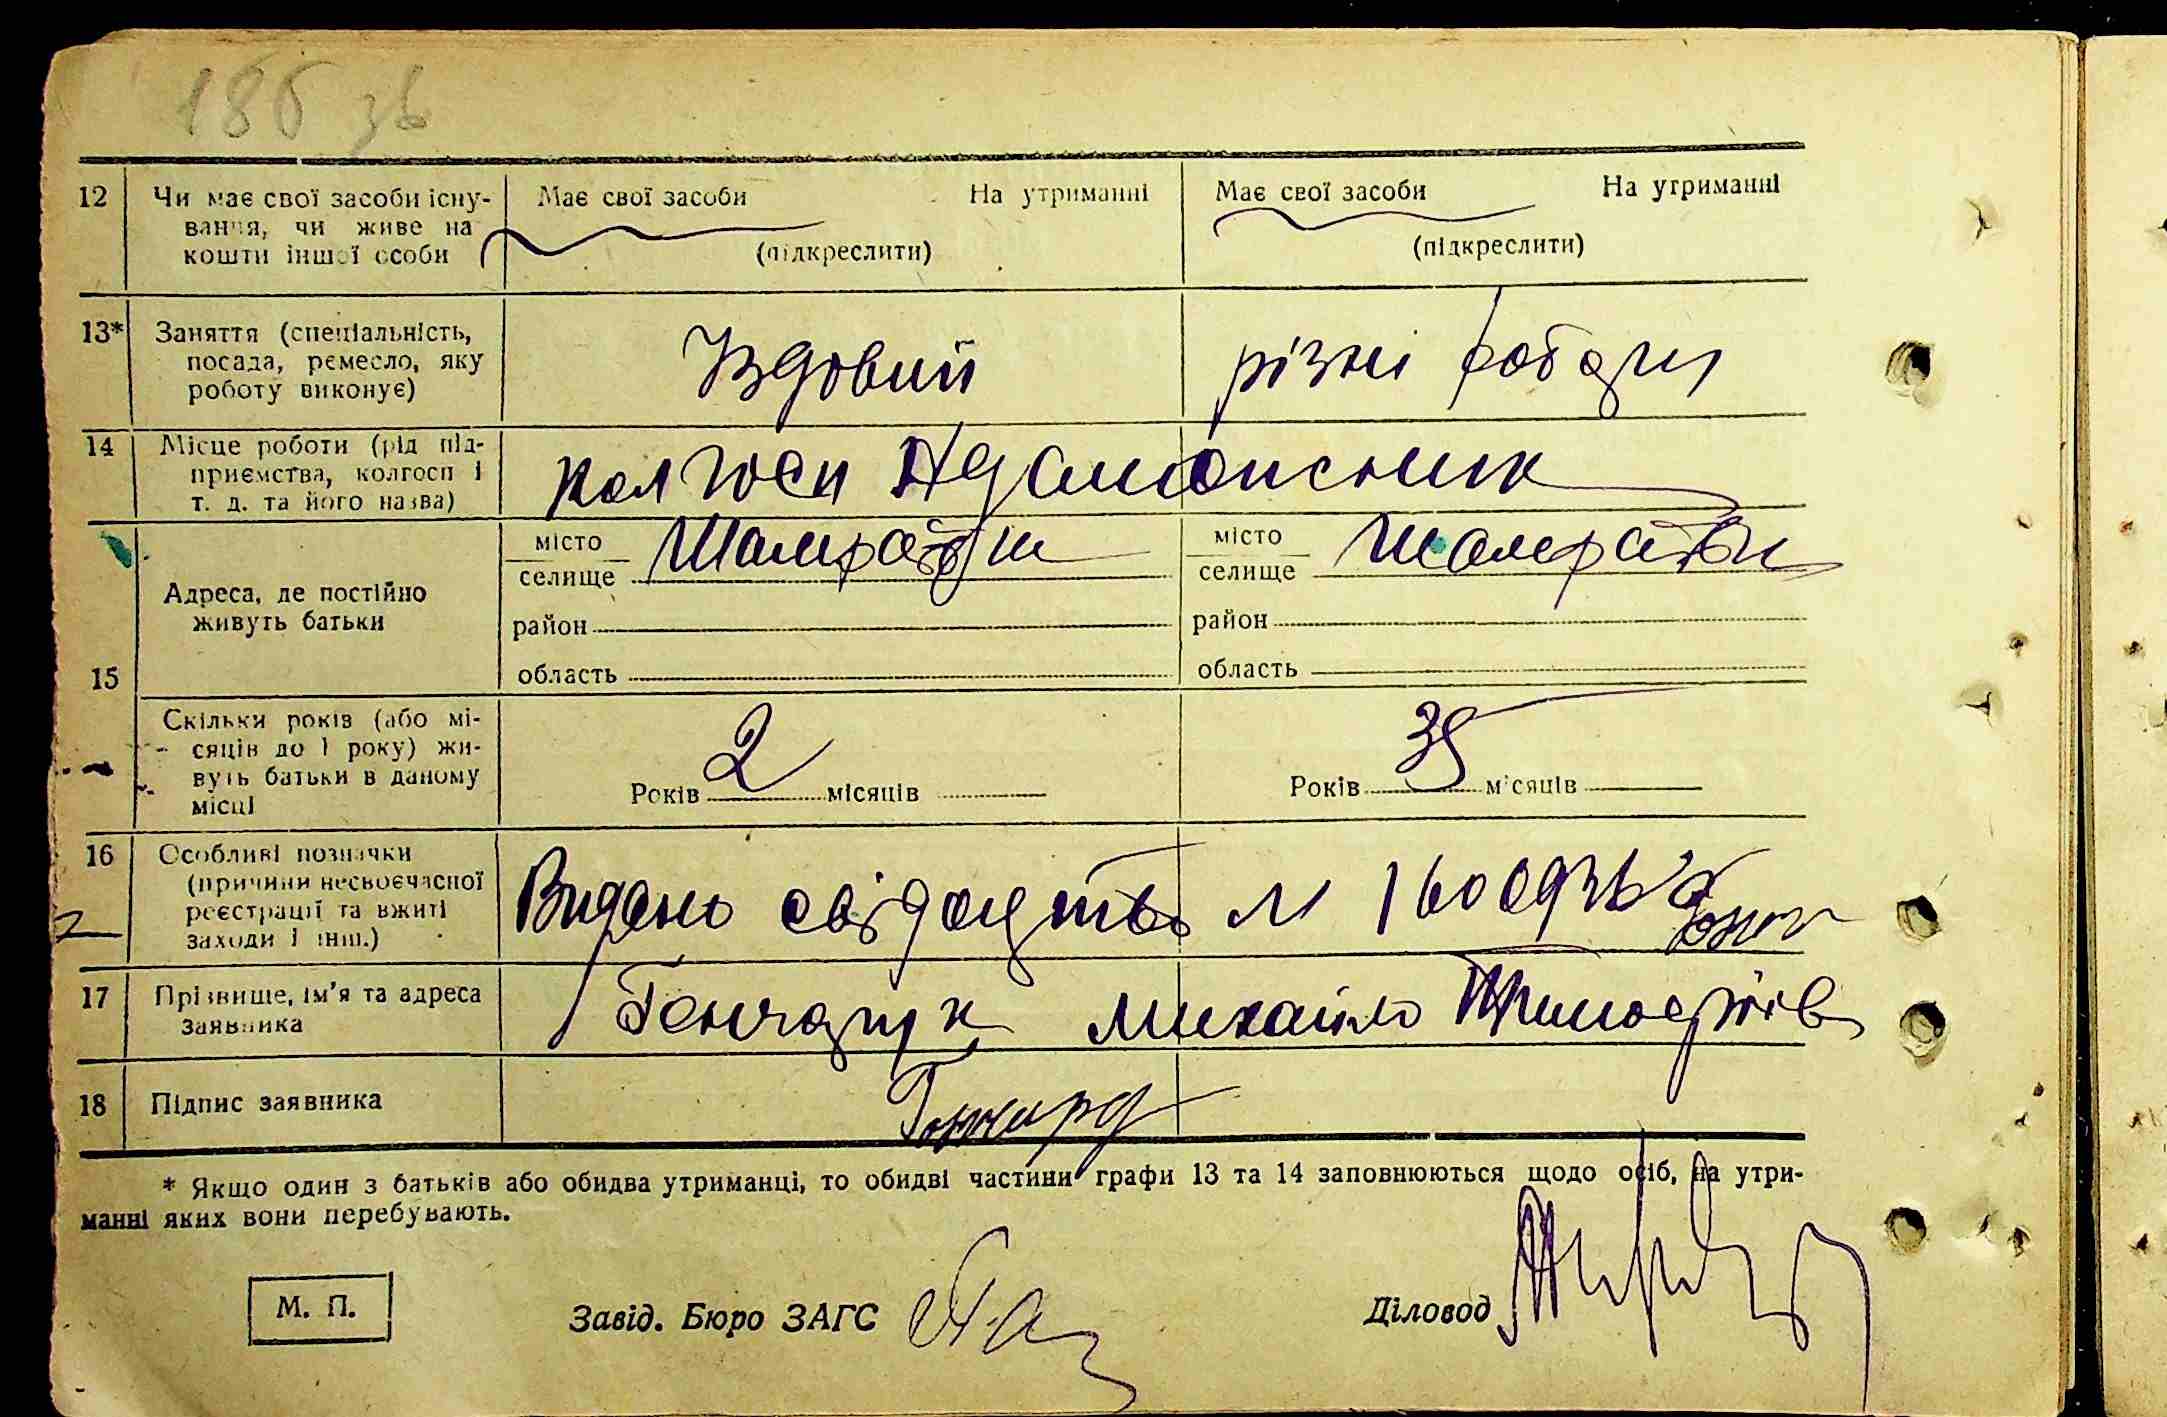 186 зв
12 Чи має свої засоби існу- Має свої засоби На утриманні Має свої засоби На утриманні
вання, чи живе на
кошти іншої особи (підкреслити) (підкреслити)
13* Заняття (спеціальність,
посада, ремесло, яку Їздовий різні роботи
роботу виконує)
14 Місце роботи (рід під-
приємства, колгосп і колгосп
т. д. та його назва)
місто місто
селище селище
15 Адреса, де постійно
живуть батьки район район
область область
Скільки років (або мі-
сяців до 1 року) жи-
вуть батьки в даному Років 2 місяців Років 35 місяців
місці
16 Особливі позначки
(причини несвоєчасної Видано свідоцтво №
реєстрації та вжиті
заходи і інш.)
17 Прізвище, ім'я та адреса Гончарук Михайло
заявника
18 Підпис заявника
* Якщо один з батьків або обидва утриманці, то обидві частини графи 13 та 14 заповнюються щодо осіб, на утри-
манні яких вони перебувають.
М. П. Завід. Бюро ЗАГС Діловод